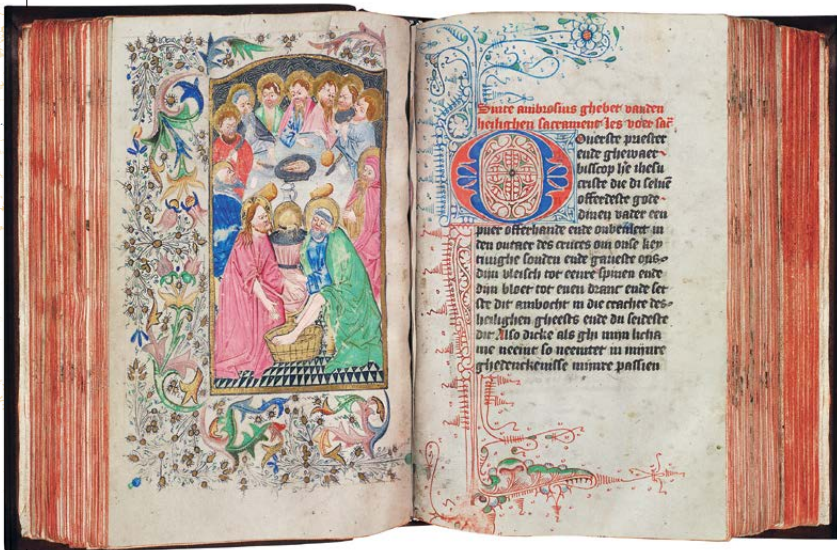 Sinte ambrosius ghebet vanden
heilighen sacrament les voert sacr̄
Ouerste priester
ende ghewaer
bisscop h̄e ihesu
criste die di seluē
offerdeste gode
dinen vader een
puer offerhande ende onbeulect in
den outaer des cruces om onse key
tiuighe sonden ende gaueste ons
dijn vleisch tot eenre spisen ende
dijn bloet tot enen dranc ende set
ste dit ambocht in die crachte des
heilighen gheests ende du seideste
dit Also dicke als ghi mijn licha
me neemt so neemtet in mijnre
ghedenckenisse mijnre passien